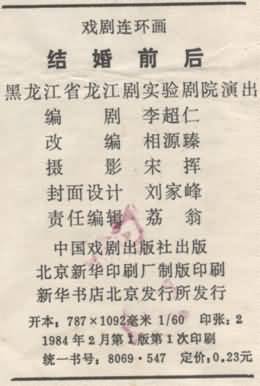 戏剧连环画
结婚前后
黑龙江省龙江剧实验剧院演出
编 剧 李超仁
改 编 相源臻
摄 影 宋 挥
封面设计 刘家峰
责任编辑 荔 翁
中国戏剧出版社出版
北京新华印刷厂制版印刷
新华书店北京发行所发行
开本：787×1092毫米 1/60 印张：2
1984年2月第1版第1次印刷
统一书号：8069·547 定价：0.23元